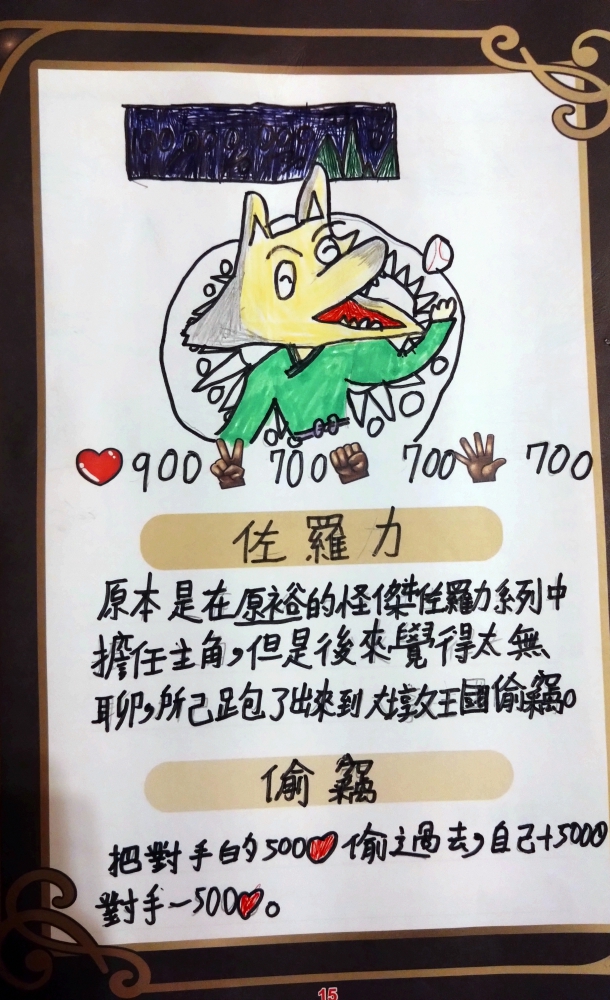 900 700 700 700
佐羅力
原本是在原裕的怪傑佐羅力系列中
擔任主角,但是後來覺得太無
聊,所己跑了出來到大墩王國偷竊。
偷竊
把對手的500偷過去,自己+500
對手-500。
15